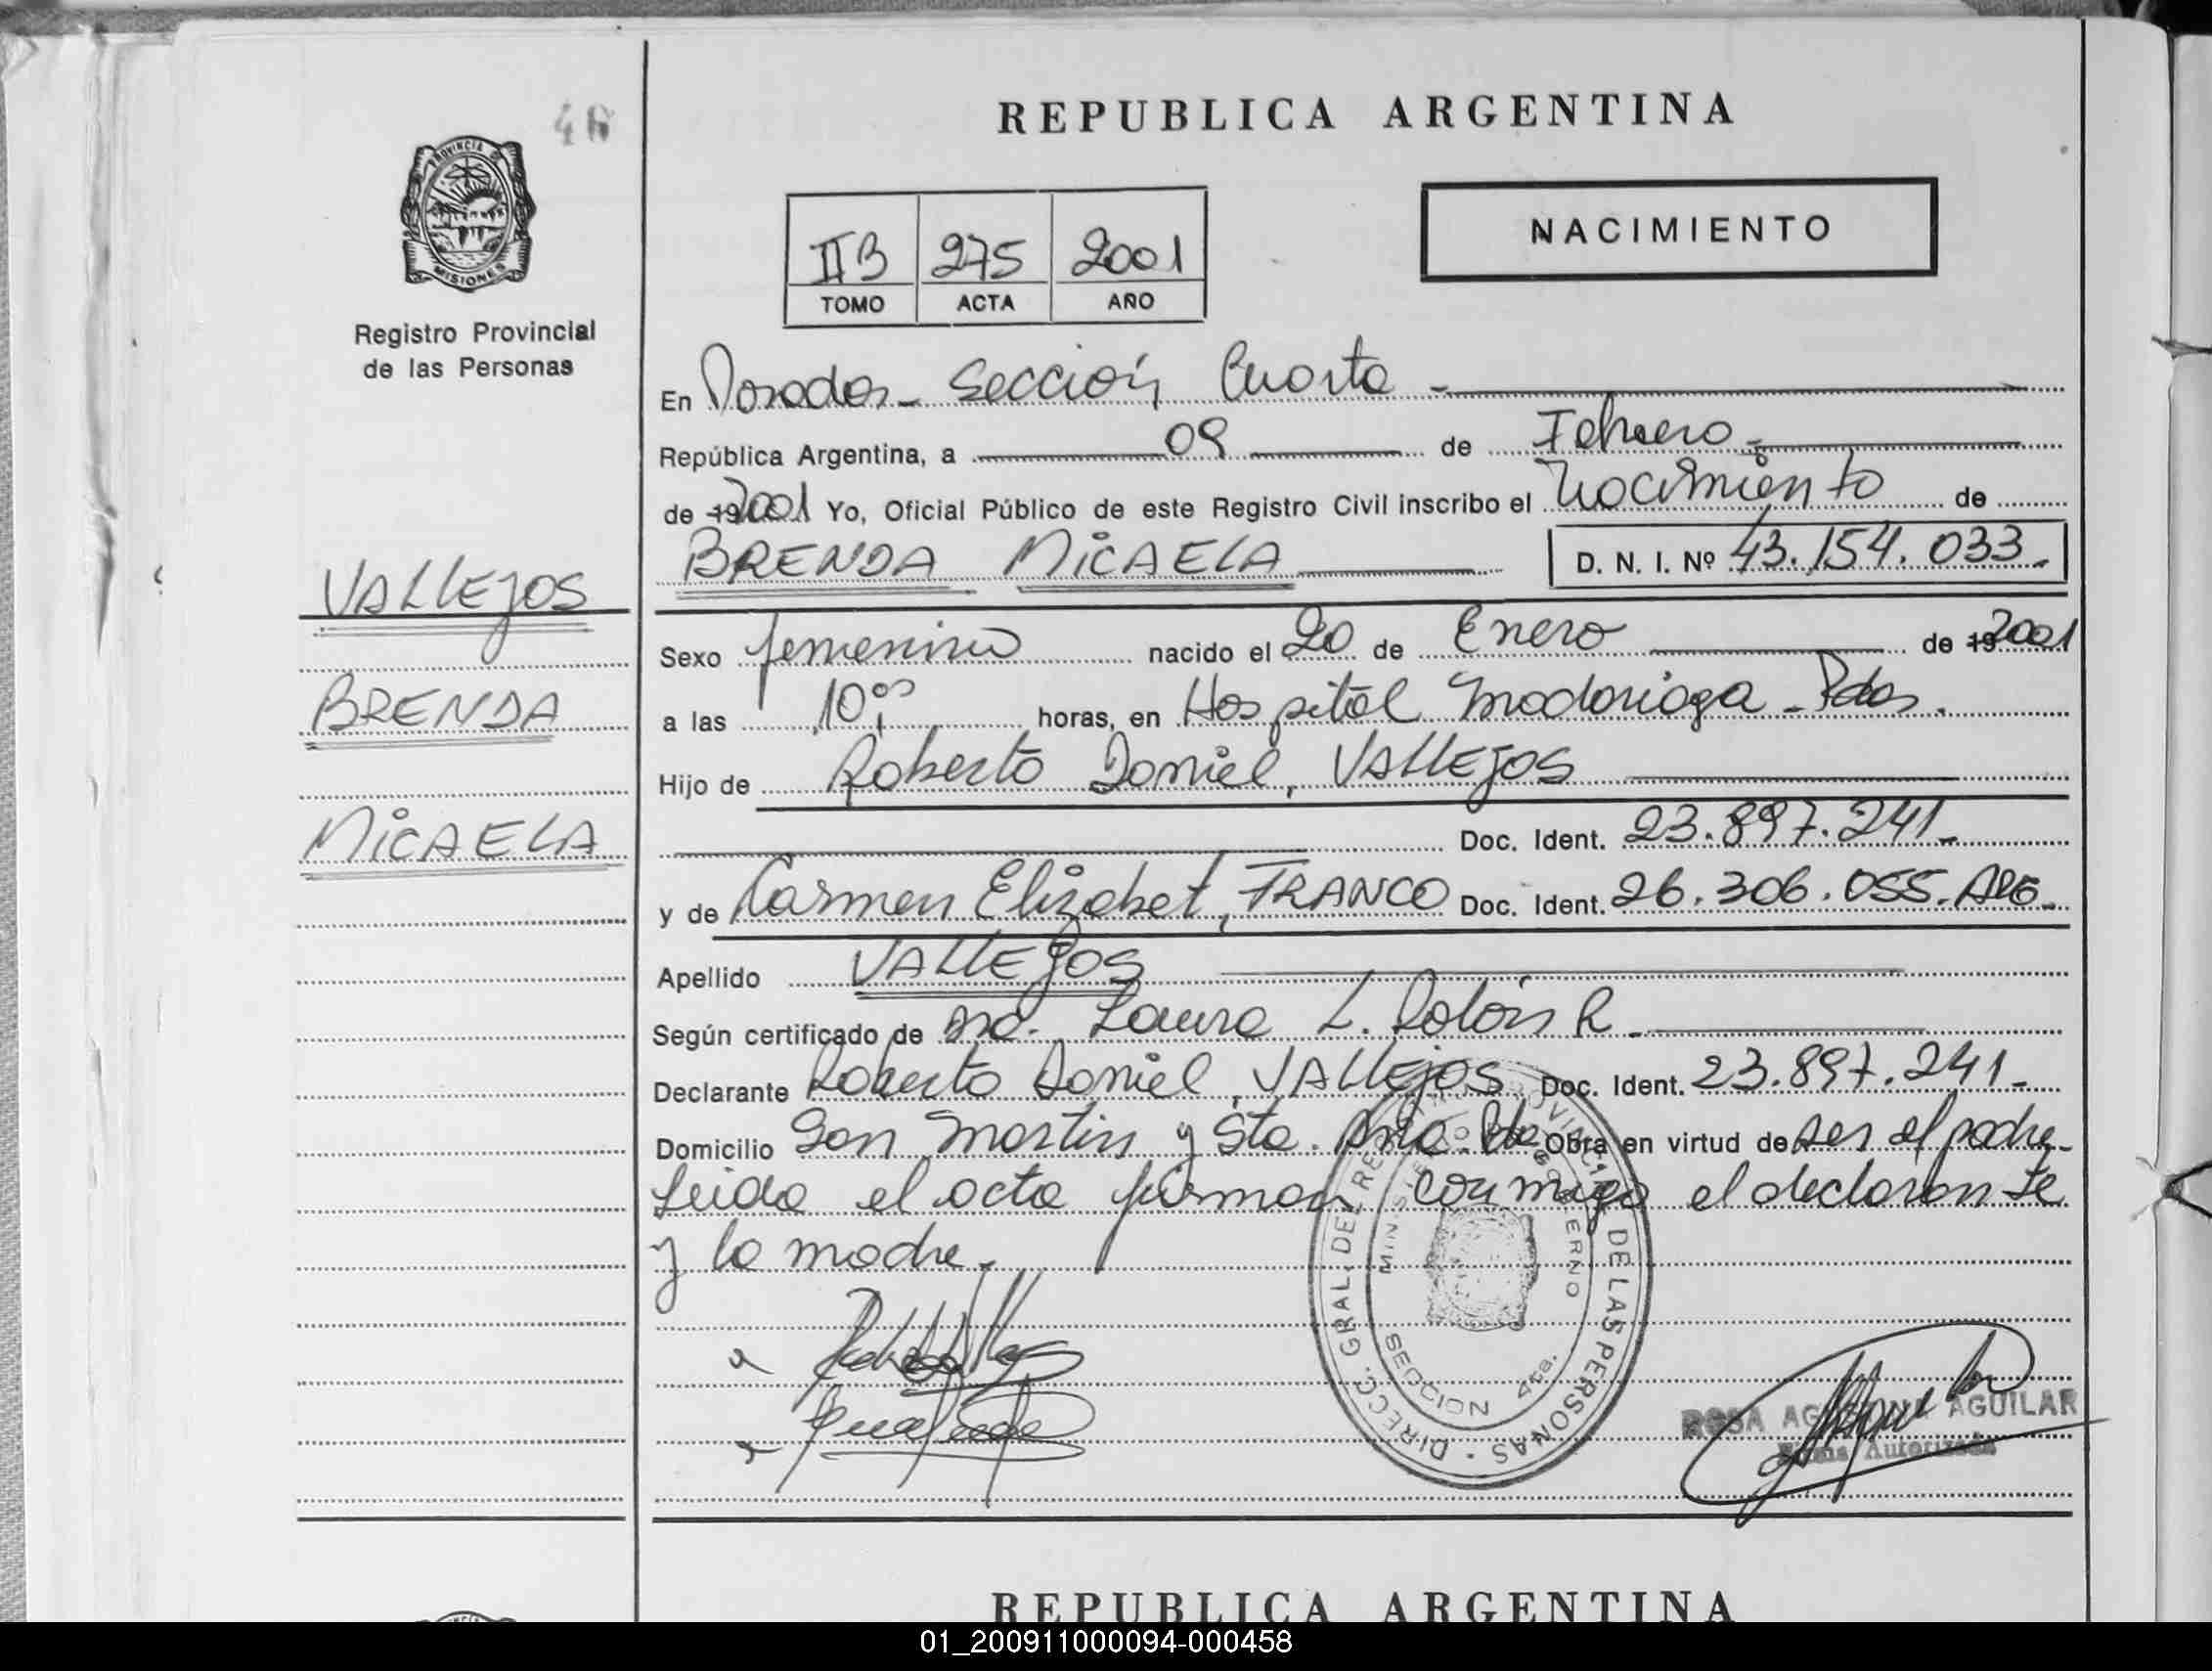 46
REPUBLICA ARGENTINA
PROVINCIA DE MISIONES
Registro Provincial
de las Personas
NACIMIENTO
IIB 275 2001
TOMO ACTA AÑO
En Posadas - Sección Cuarta -
República Argentina, a 09 de Febrero -
de 19 2001 Yo, Oficial Público de este Registro Civil inscribo el Nacimiento de
BRENDA MICAELA D. N. I. Nº 43.154.033.-
VALLEJOS
BRENDA
MICAELA
Sexo femenino nacido el 20 de Enero de 19 2001
a las 10:00 horas, en Hospital Madariaga - Pdas.
Hijo de Roberto Daniel, VALLEJOS
Doc. Ident. 23.897.241.-
y de Carmen Elizabet, FRANCO Doc. Ident. 26.306.055. ARG.-
Apellido VALLEJOS
Según certificado de Laura L. R.-
Declarante Roberto Daniel, VALLEJOS Doc. Ident. 23.897.241.-
Domicilio San Martin y Sta. Obra en virtud de ser el padre.-
Leida el acta firman conmigo el declarante
y la madre.-
DIRECC. GRAL. DEL REG. PROVINC. DE LAS PERSONAS
MINISTERIO DE GOBIERNO
SECCION 4ta.
ROSA AGUILAR
Firma Autorizada
REPUBLICA ARGENTINA
01_200911000094-000458